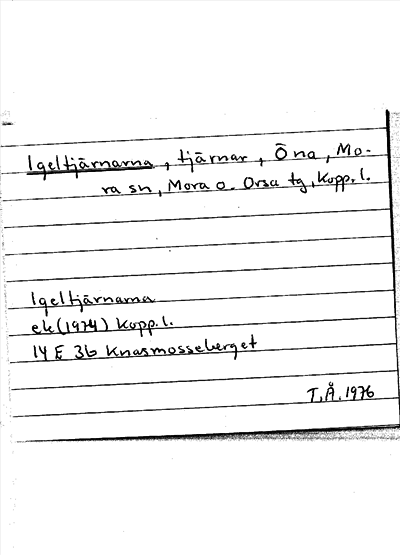 Igeltjärnarna, tjärnar, Öna, Mo-
ra sn, Mora o. Orsa tg, Kopp. l.
Igeltjärnarna
ek (1974) Kopp. l.
14 E 3b Knasmosseberget
T. Å. 1976